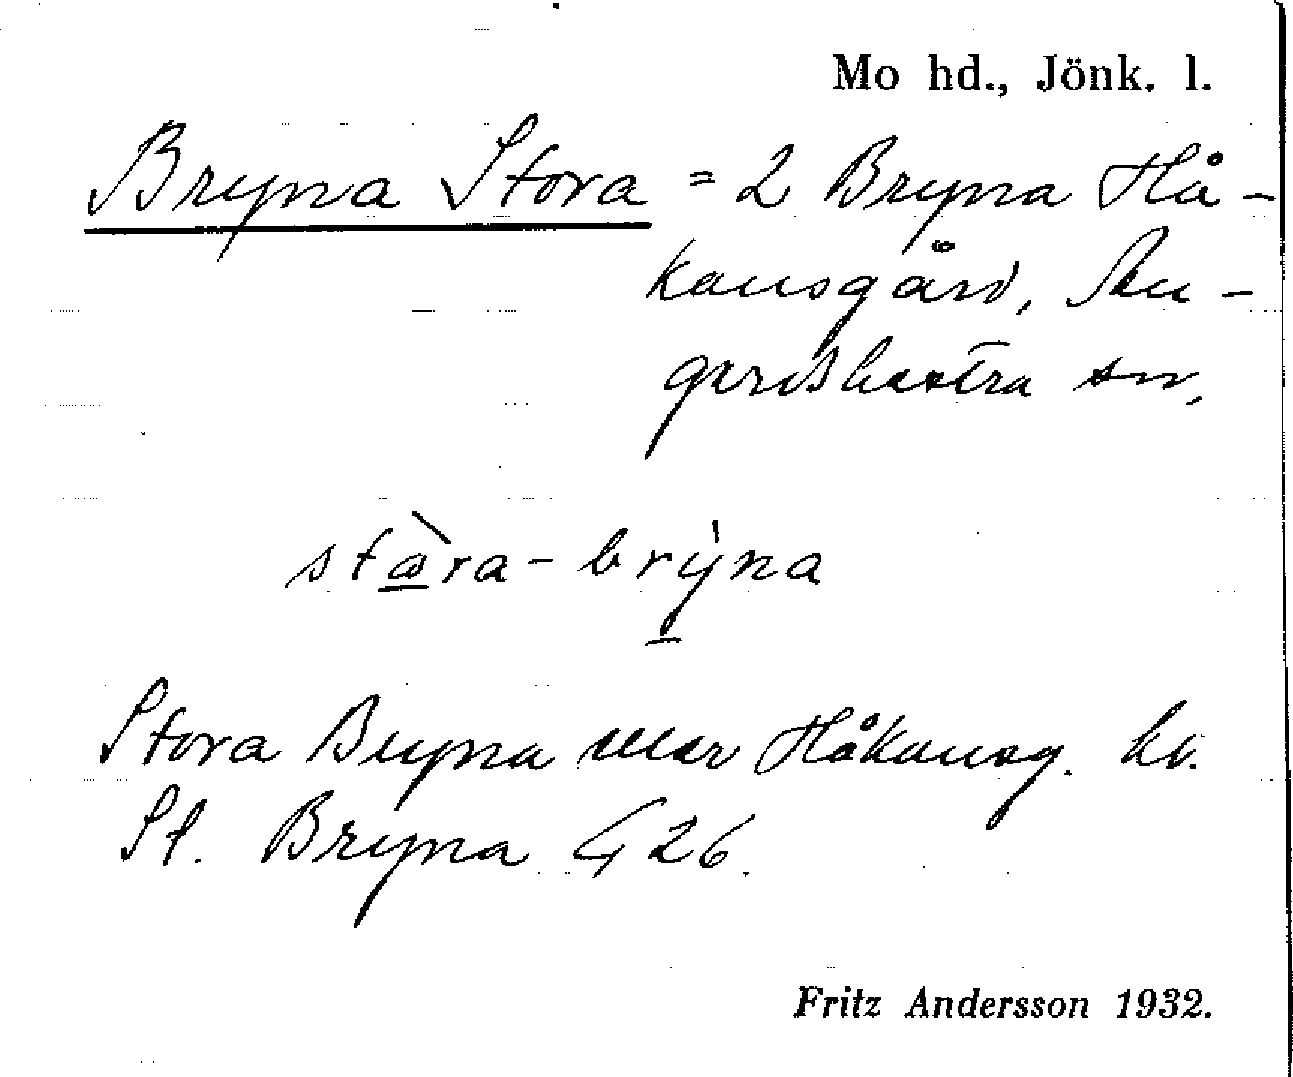 Mo hd., Jönk. l.
Bryna Stora = 2 Bryna Hå-
kansgård, Ån-
gerdshestra sn,
stòra-brýna
Stora Bryna Håkansg. kv.
St. Bryna G 26.
Fritz Andersson 1932.